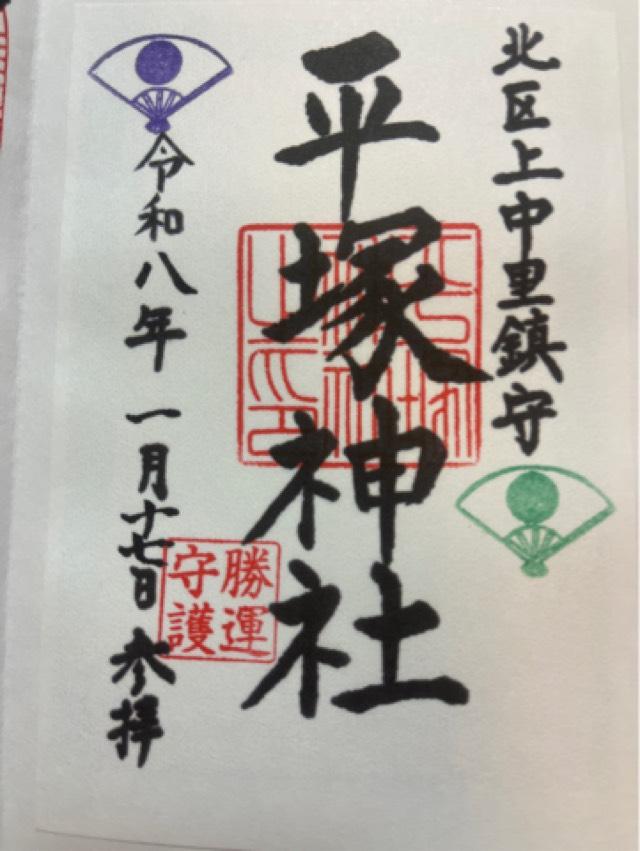 北区上中里鎮守
平塚神社
勝運
守護
令和八年 一月十七日 参拝